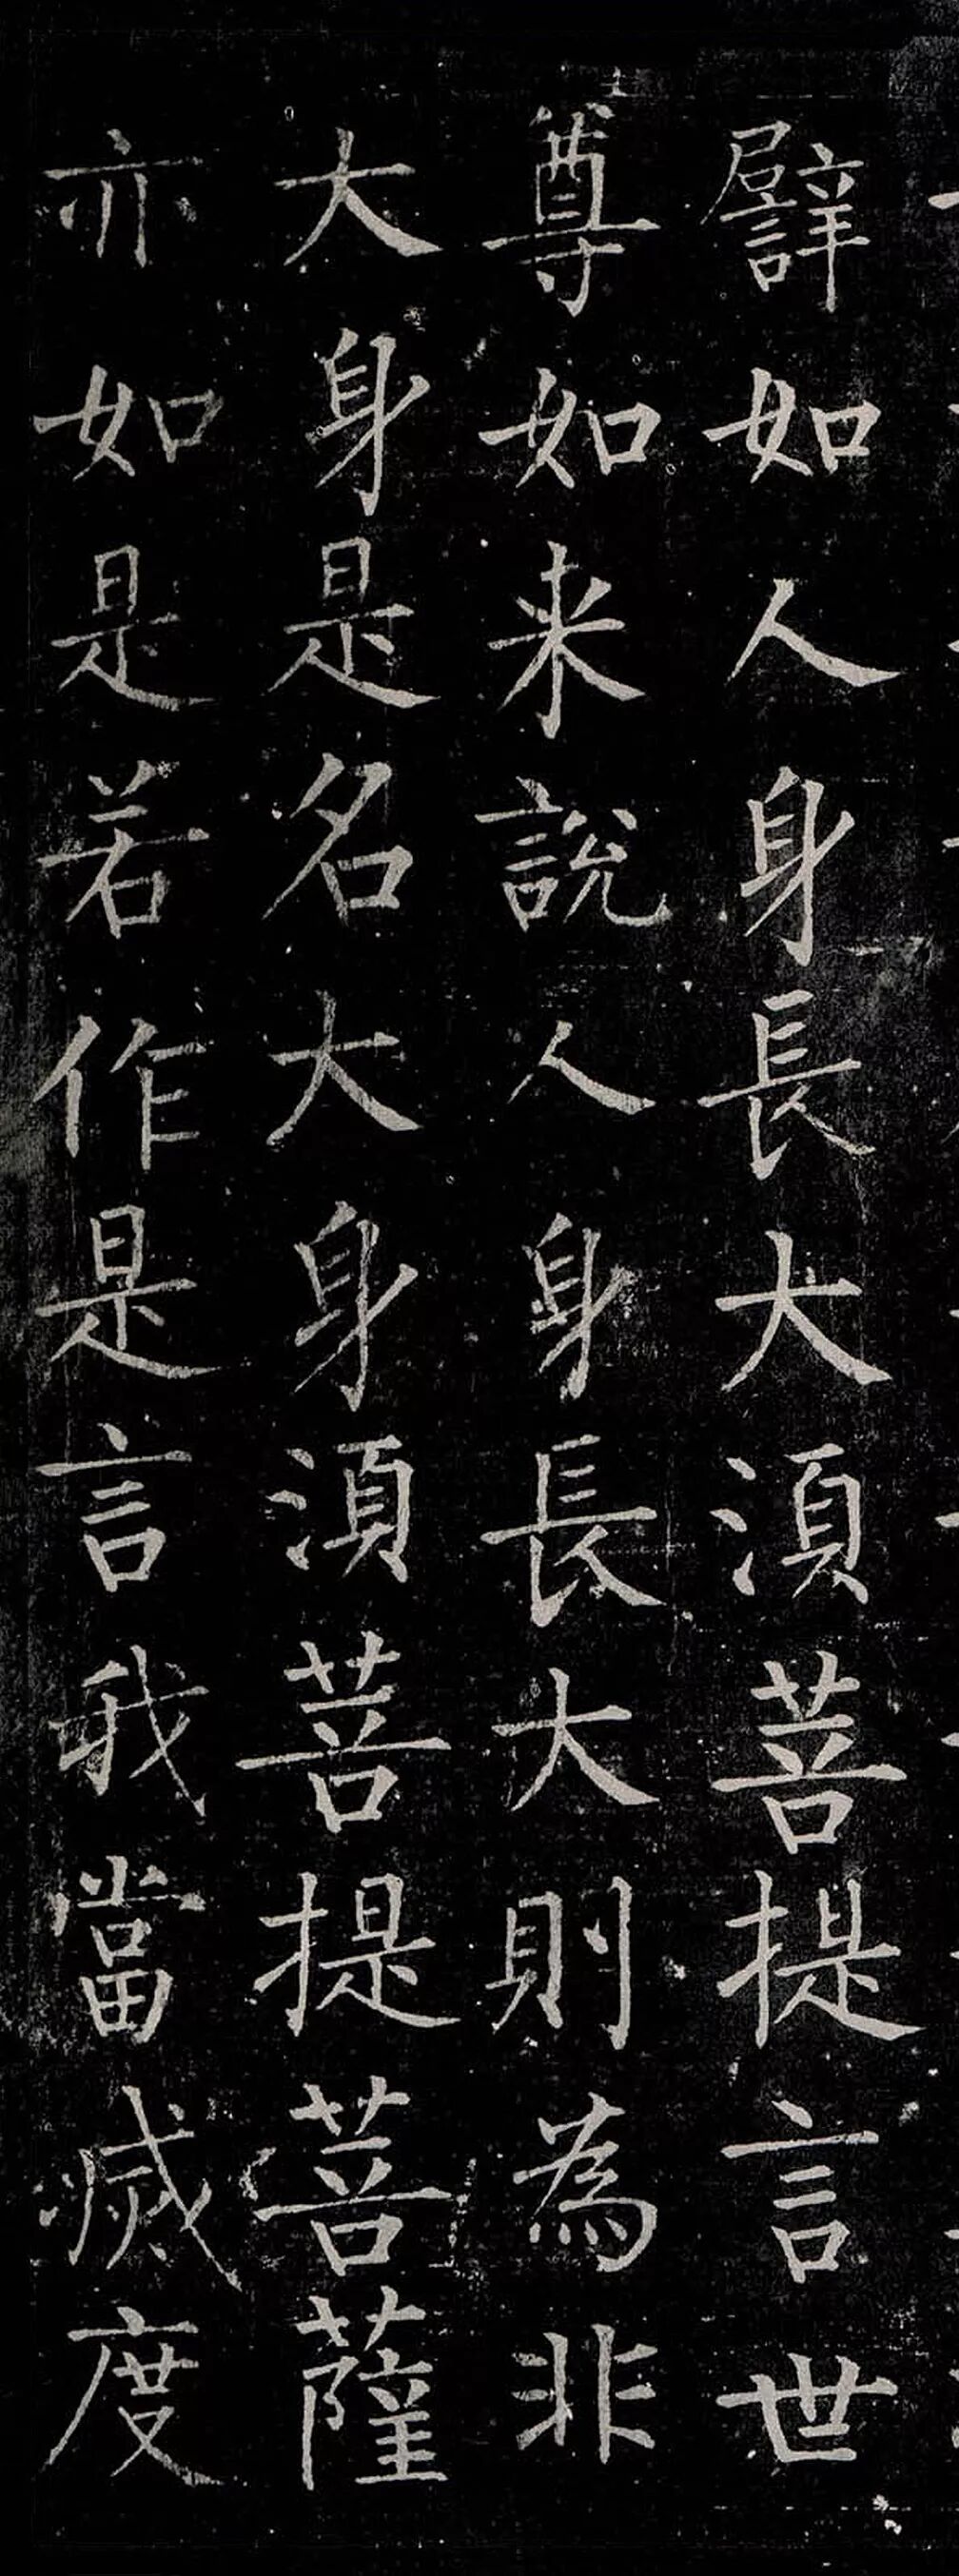 譬如人身長大湏菩提言世
尊如来說人身長大則為非
大身是名大身湏菩提菩薩
亦如是若作是言我當滅度